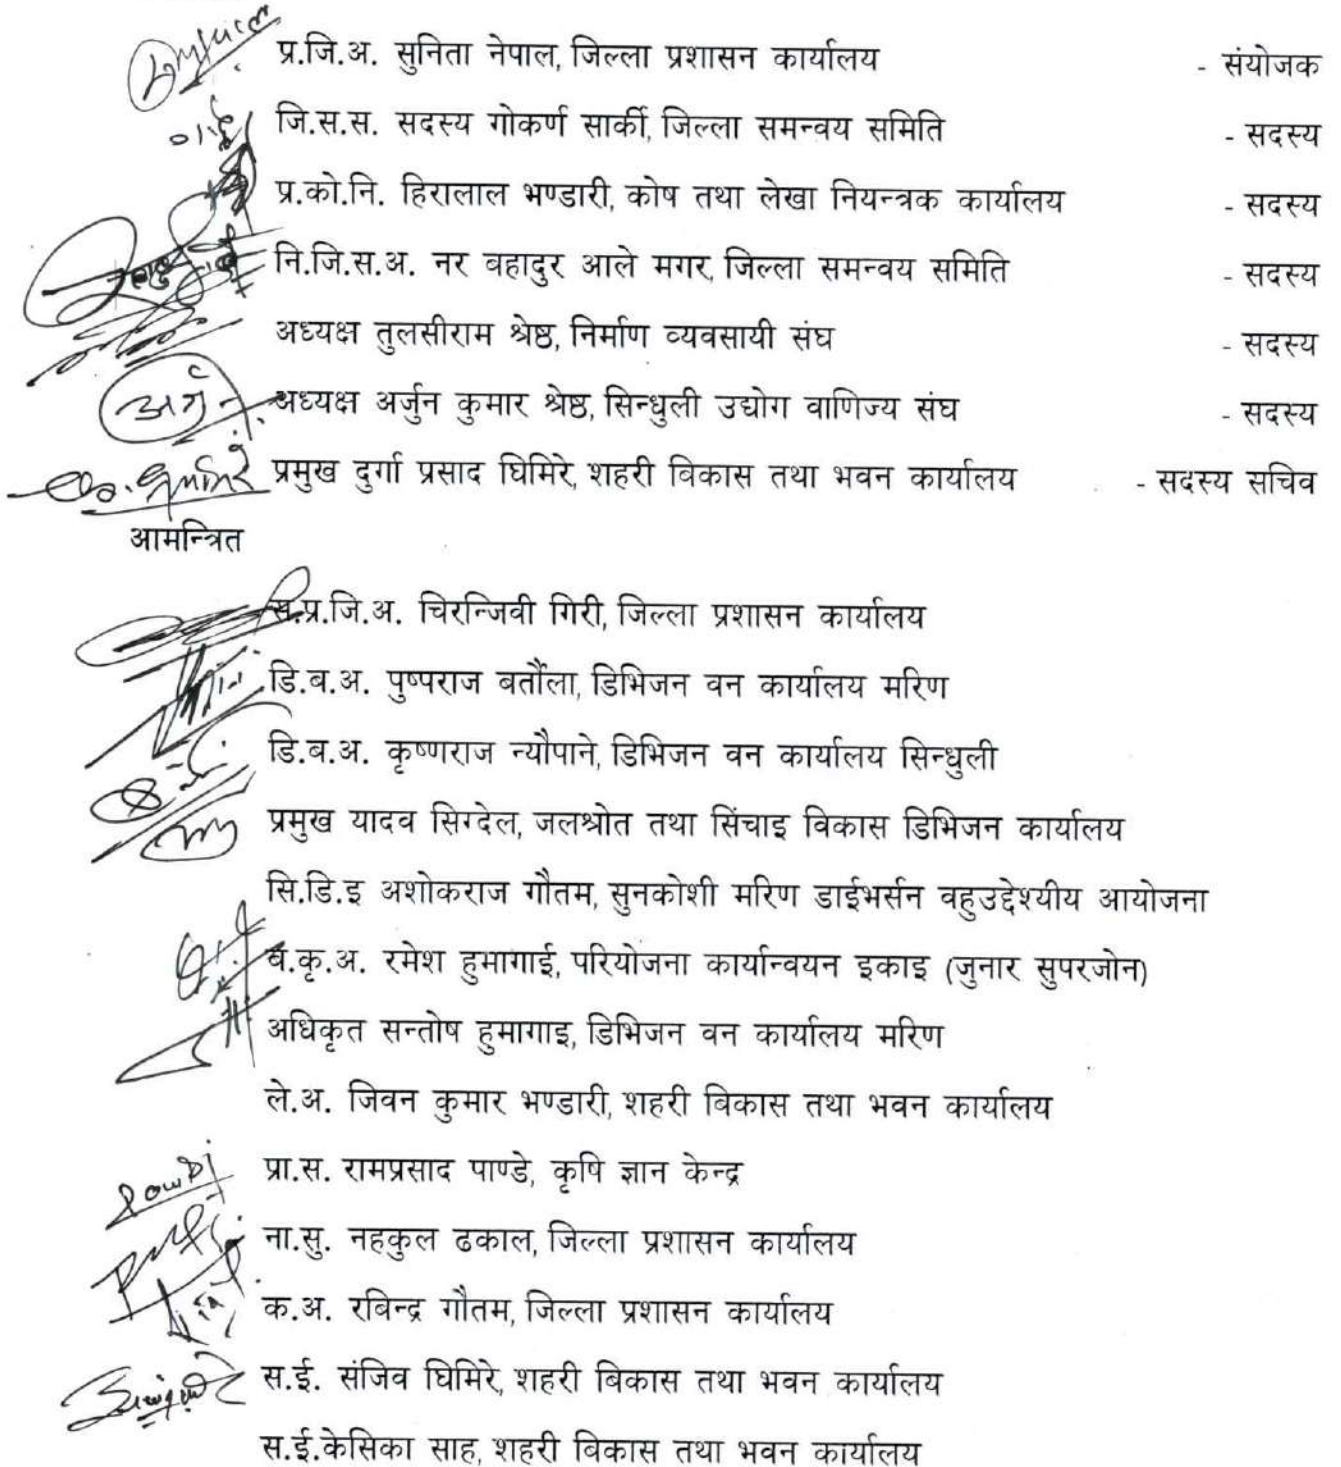 प्र.जि.अ. सुनिता नेपाल, जिल्ला प्रशासन कार्यालय - संयोजक
जि.स.स. सदस्य गोकर्ण सार्की, जिल्ला समन्वय समिति - सदस्य
प्र.को.नि. हिरालाल भण्डारी, कोष तथा लेखा नियन्त्रक कार्यालय - सदस्य
नि.जि.स.अ. नर बहादुर आले मगर, जिल्ला समन्वय समिति - सदस्य
अध्यक्ष तुलसीराम श्रेष्ठ, निर्माण व्यवसायी संघ - सदस्य
अध्यक्ष अर्जुन कुमार श्रेष्ठ, सिन्धुली उद्योग वाणिज्य संघ - सदस्य
प्रमुख दुर्गा प्रसाद घिमिरे, शहरी विकास तथा भवन कार्यालय - सदस्य सचिव
आमन्त्रित
स.प्र.जि.अ. चिरन्जिवी गिरी, जिल्ला प्रशासन कार्यालय
डि.ब.अ. पुष्पराज बर्तौला, डिभिजन वन कार्यालय मरिण
डि.ब.अ. कृष्णराज न्यौपाने, डिभिजन वन कार्यालय सिन्धुली
प्रमुख यादव सिग्देल, जलश्रोत तथा सिंचाइ विकास डिभिजन कार्यालय
सि.डि.इ अशोकराज गौतम, सुनकोशी मरिण डाईभर्सन वहुउद्देश्यीय आयोजना
ब.कृ.अ. रमेश हुमागाई, परियोजना कार्यान्वयन इकाइ (जुनार सुपरजोन)
अधिकृत सन्तोष हुमागाइ, डिभिजन वन कार्यालय मरिण
ले.अ. जिवन कुमार भण्डारी, शहरी बिकास तथा भवन कार्यालय
प्रा.स. रामप्रसाद पाण्डे, कृषि ज्ञान केन्द्र
ना.सु. नहकुल ढकाल, जिल्ला प्रशासन कार्यालय
क.अ. रबिन्द्र गौतम, जिल्ला प्रशासन कार्यालय
स.ई. संजिव घिमिरे, शहरी बिकास तथा भवन कार्यालय
स.ई.केसिका साह, शहरी बिकास तथा भवन कार्यालय